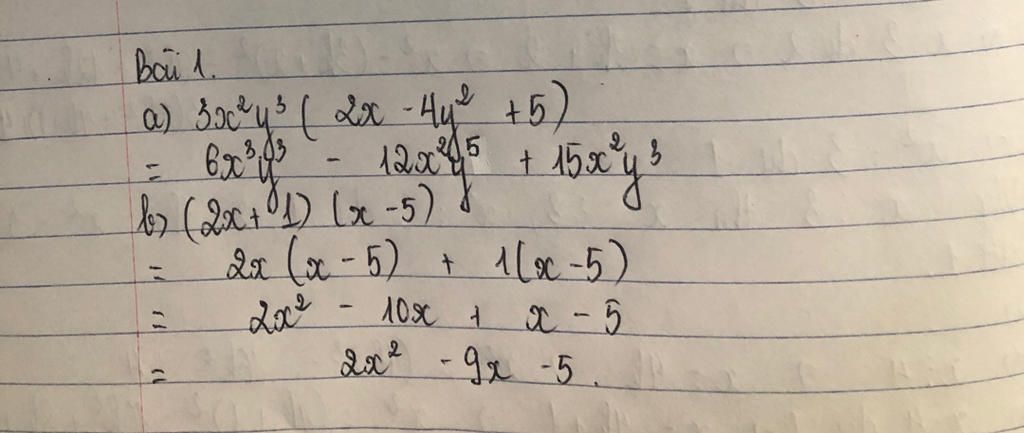 Bài 1.
a) 3x²y³ ( 2x - 4y² + 5)
= 6x³y³ - 12x²y⁵ + 15x²y³
b) (2x + 1) (x - 5)
= 2x (x - 5) + 1(x - 5)
= 2x² - 10x + x - 5
= 2x² - 9x - 5.